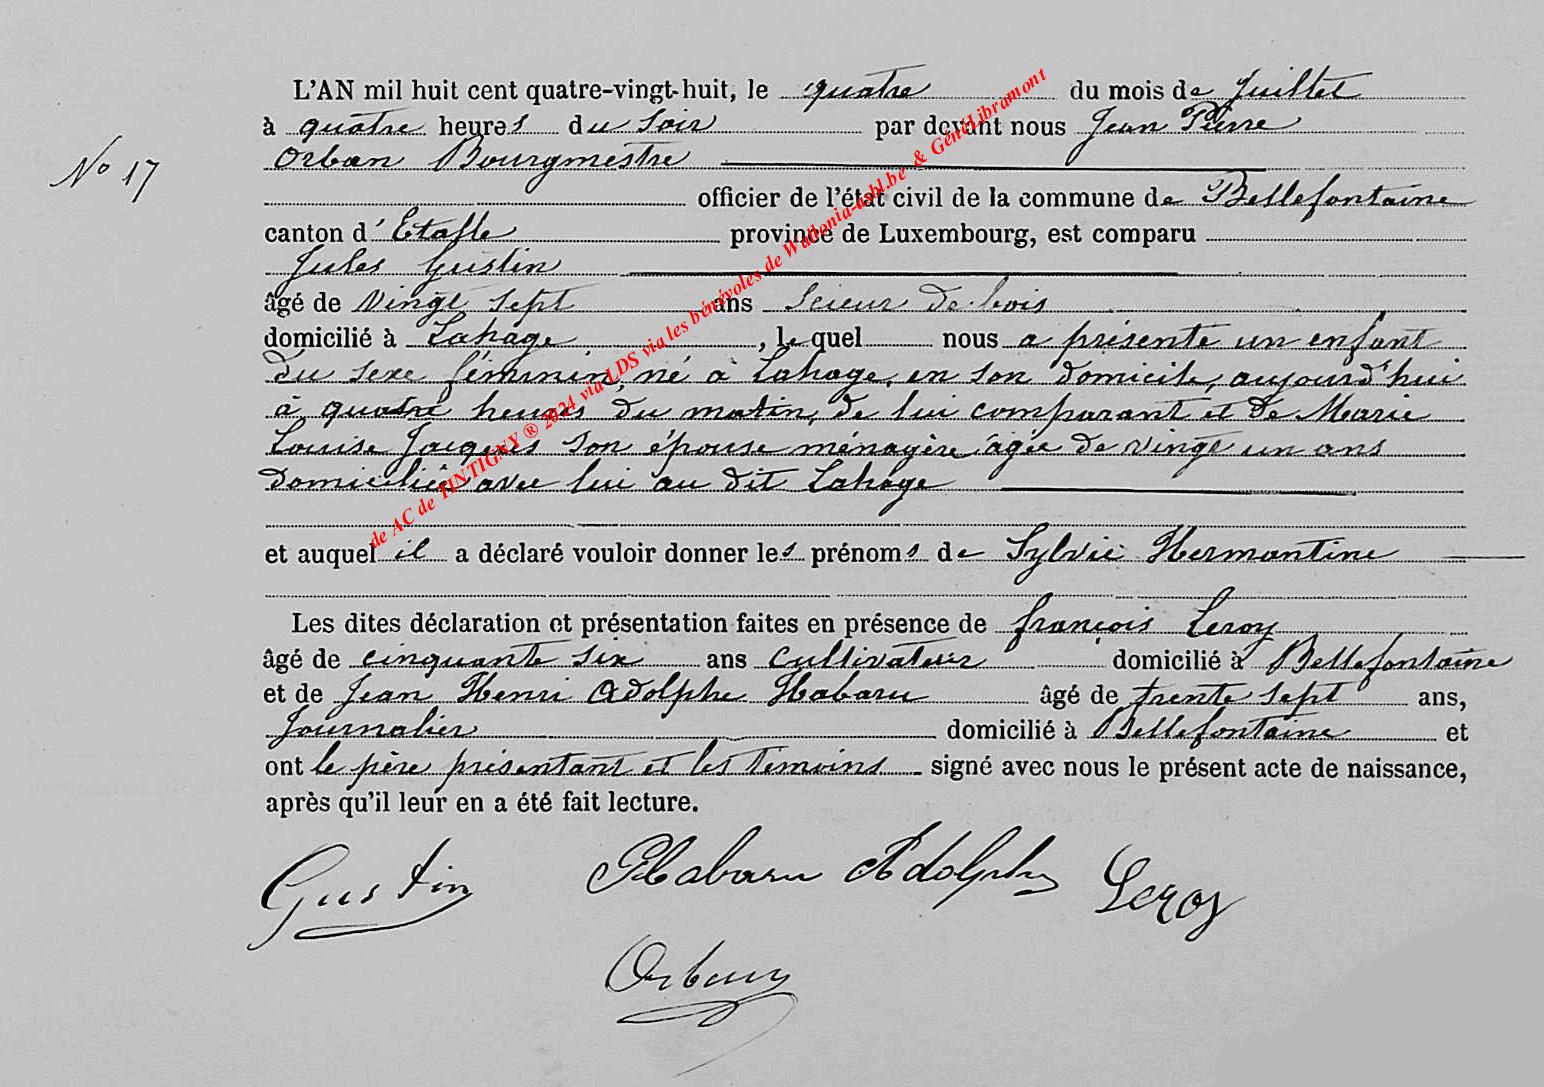 L'AN mil huit cent quatre-vingt-huit, le quatre du mois de Juillet
à quatre heures du soir par devant nous Jean Pierre
Orban Bourgmestre
N° 17
officier de l'état civil de la commune de Bellefontaine
canton d'Etalle province de Luxembourg, est comparu
Jules Gustin
âgé de vingt sept ans Scieur de bois
domicilié à Lahage, lequel nous a présenté un enfant
du sexe féminin, né à Lahage, en son domicile, aujourd'hui
à quatre heures du matin, de lui comparant et de Marie
Louise Jacques son épouse ménagère âgée de vingt un ans
domiciliée avec lui au dit Lahage
et auquel il a déclaré vouloir donner les prénoms de Sylvie Hermantine
Les dites déclaration et présentation faites en présence de françois Leroy
âgé de cinquante six ans cultivateur domicilié à Bellefontaine
et de Jean Henri Adolphe Habaru âgé de trente sept ans,
Journalier domicilié à Bellefontaine et
ont le père présentant et les témoins signé avec nous le présent acte de naissance,
après qu'il leur en a été fait lecture.
Gustin Habaru Adolphe Leroy
Orban
de AC de TINTIGNY ® 2024 via LDS via les bénévoles de Wallonia-asbl.be & GénéLibramont